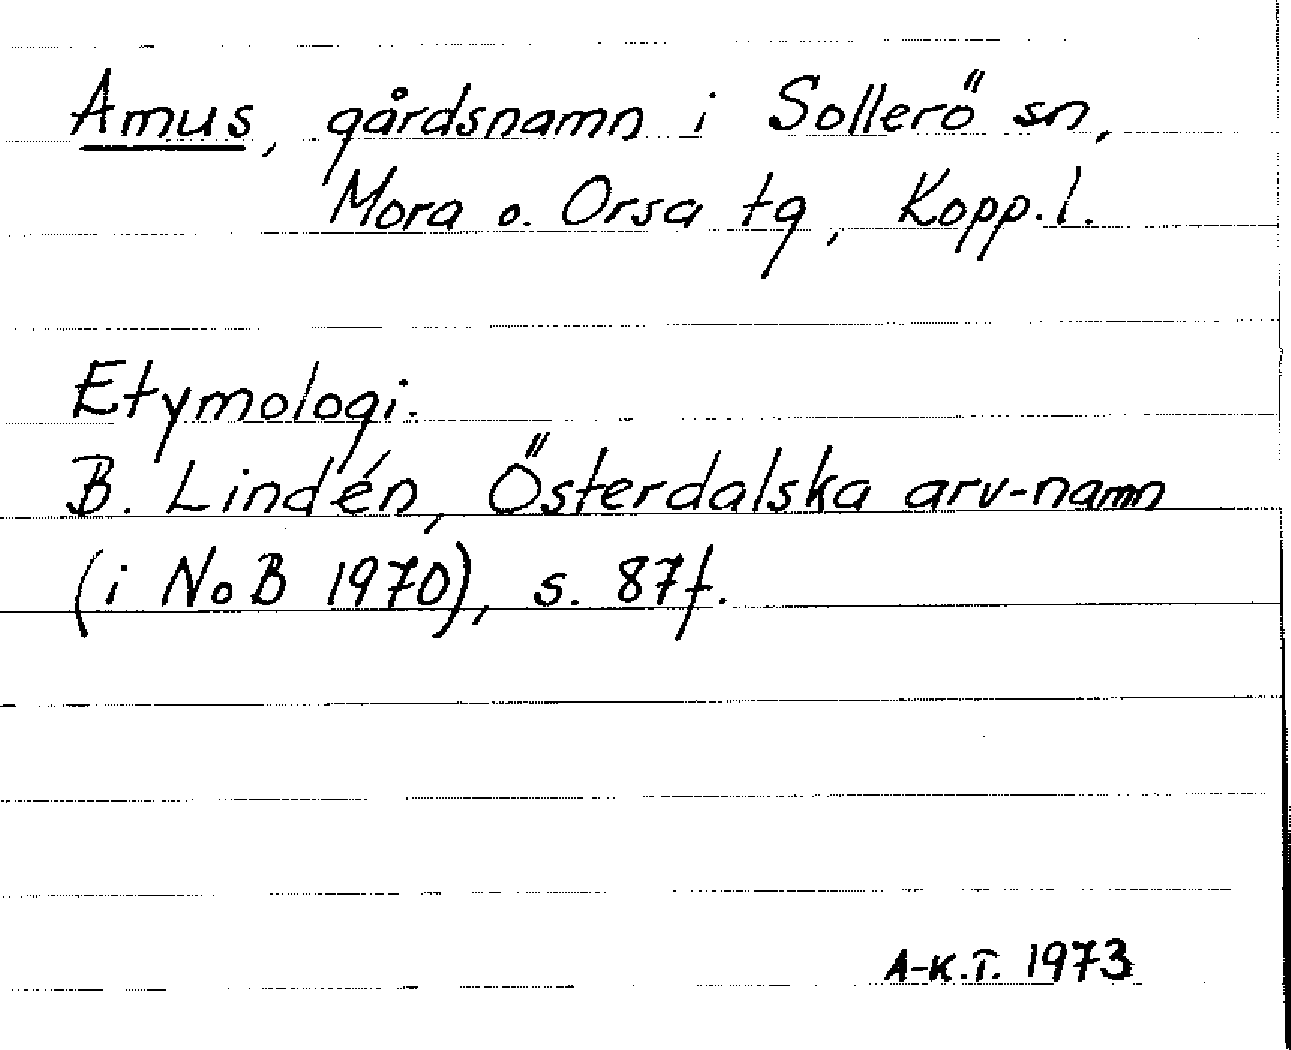 Amus, gårdsnamn i Sollerö sn,
Mora o. Orsa tg, Kopp.l.
Etymologi.
B. Lindén, Österdalska arv-namn
(i NoB 1970), s. 87f.
A-K.T. 1973